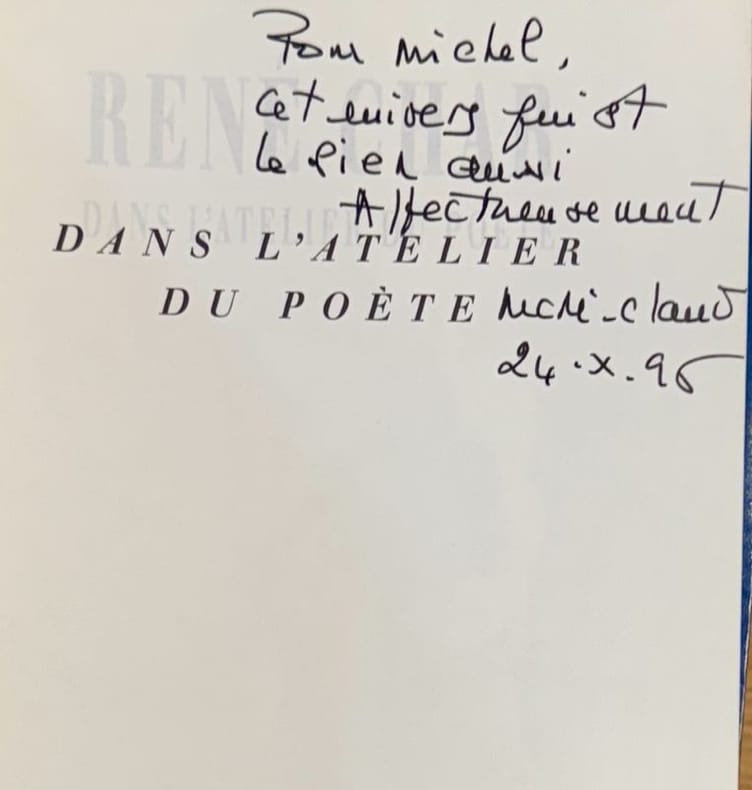 Pour Michel,
cet univers qui est
le sien aussi
Affectueusement
DANS L'ATELIER
DU POÈTE
Marie-Claude
24.X.96
RENÉ CHAR
DANS L'ATELIER DU POÈTE